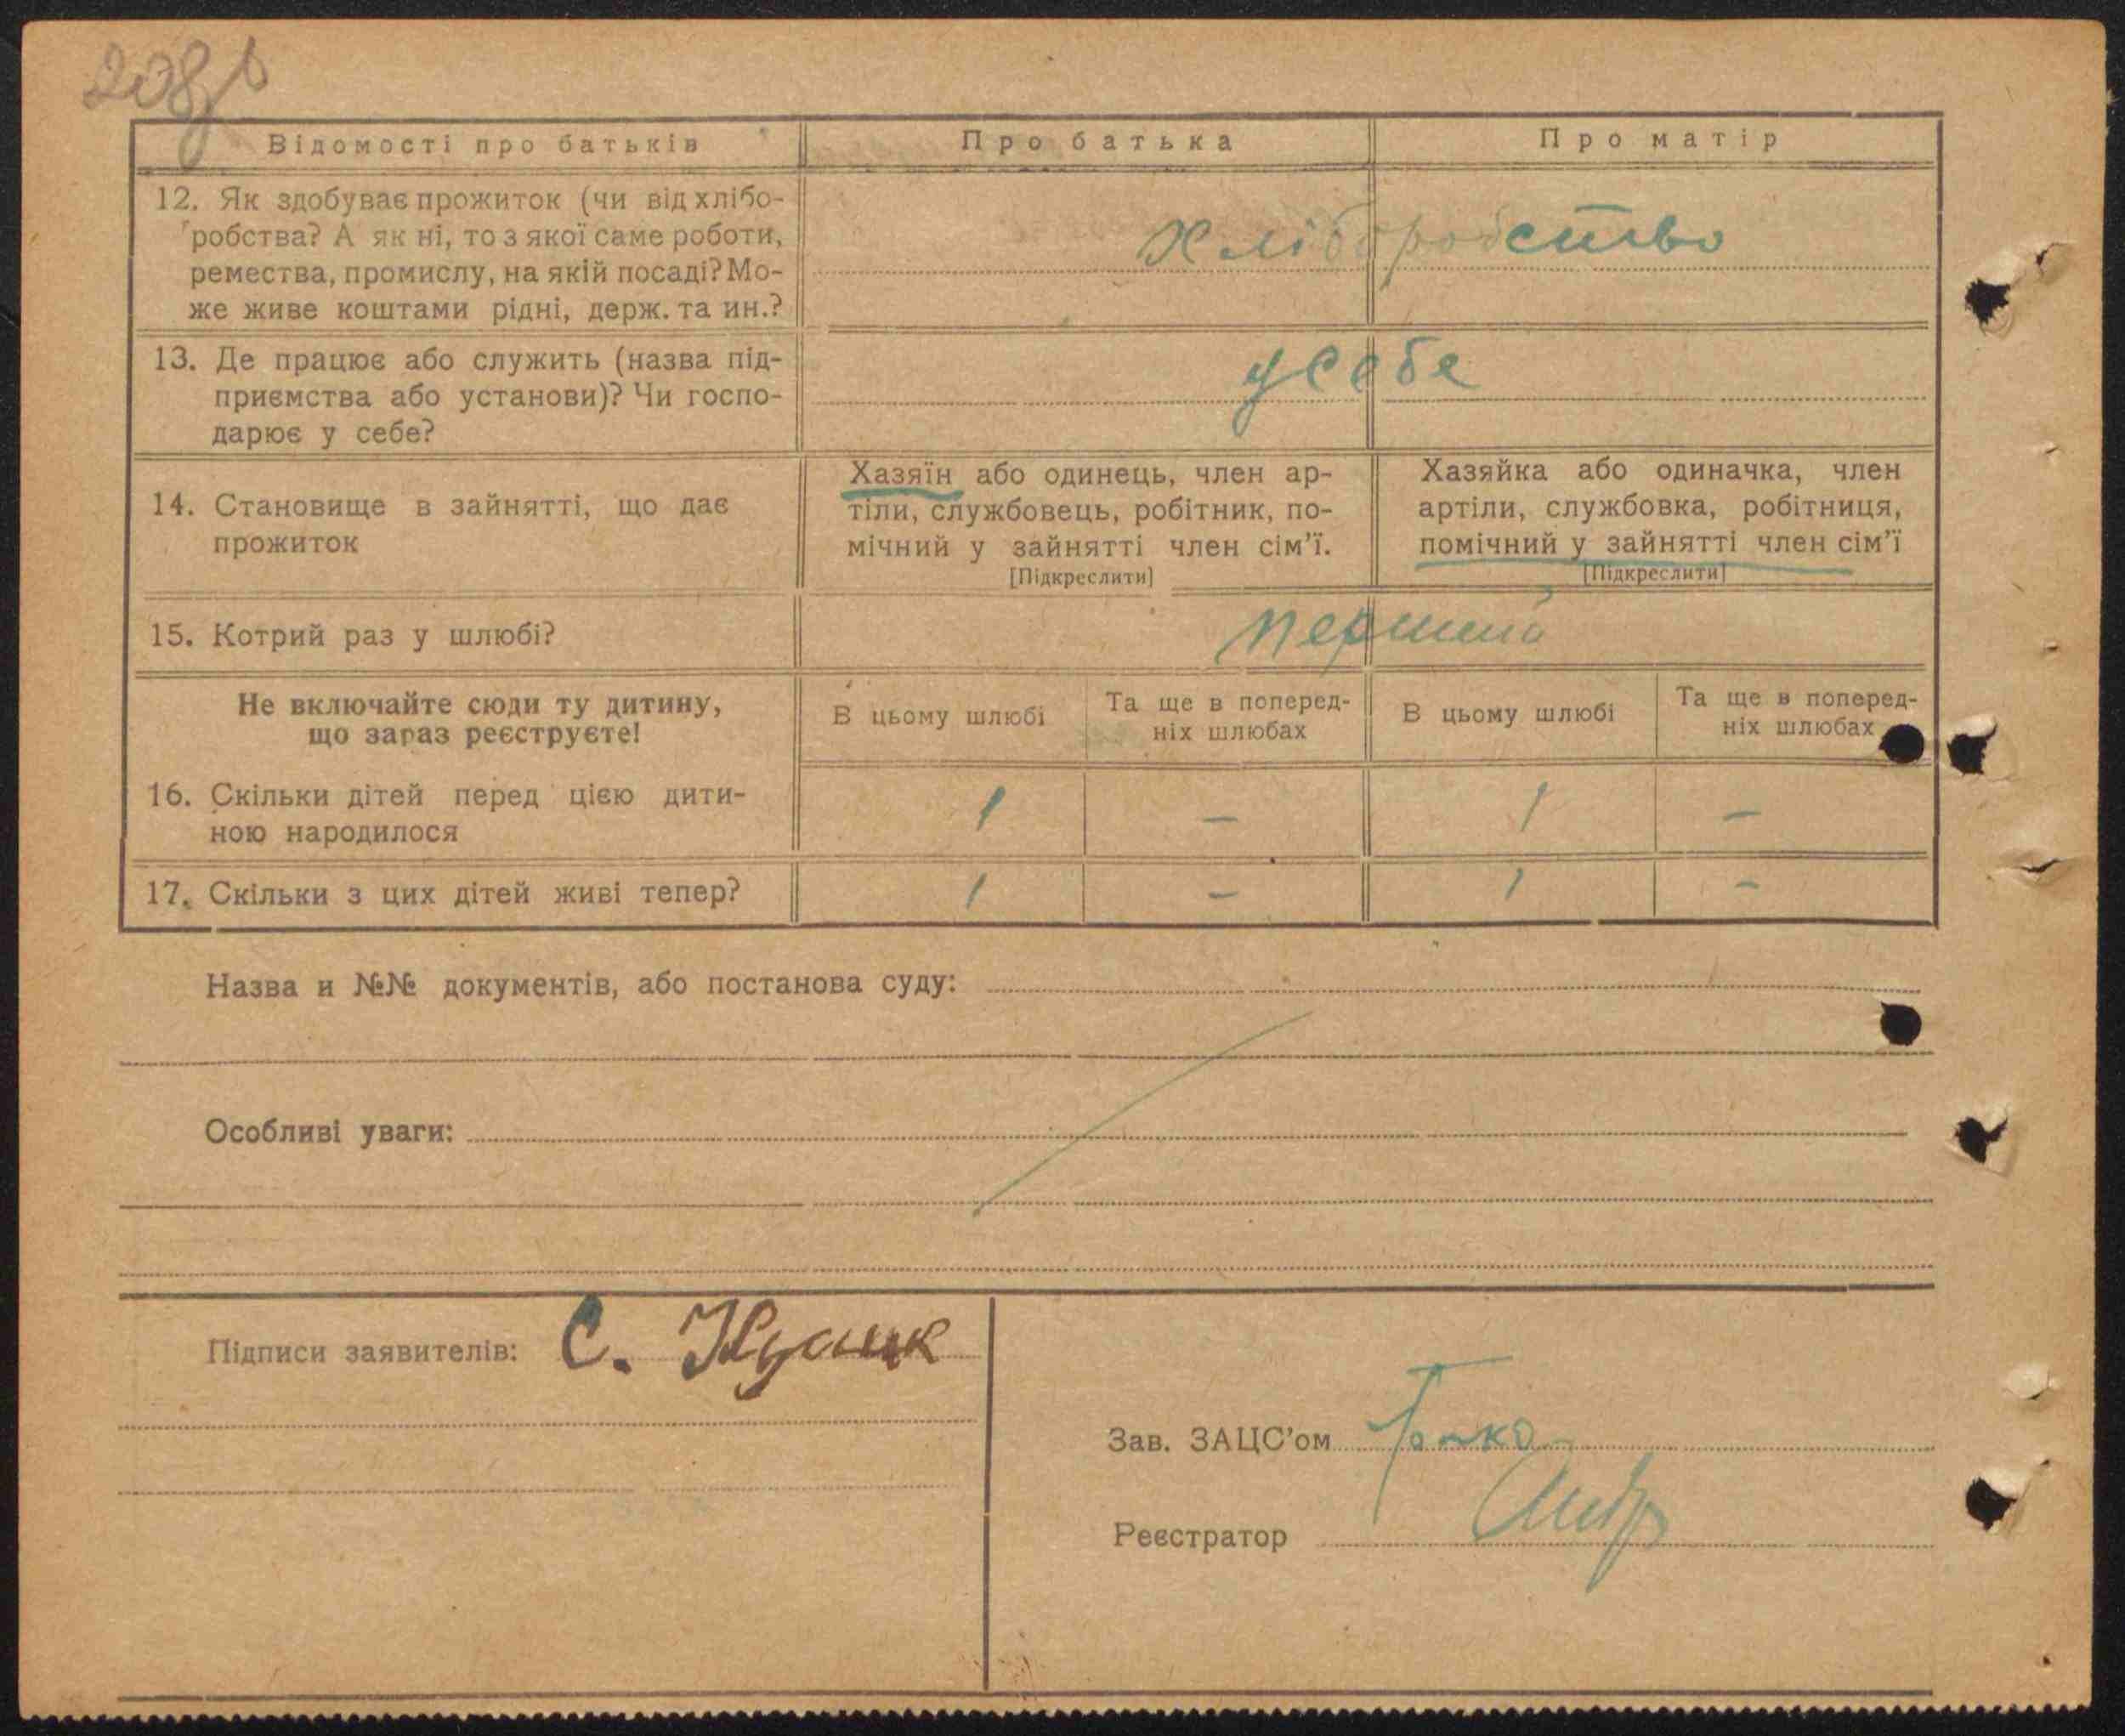 Відомості про батьків Про батька Про матір
12. Як здобуває прожиток (чи від хлібо-
робства? А як ні, то з якої саме роботи,
ремества, промислу, на якій посаді? Мо-
же живе коштами рідні, держ. та ин.?
Хліборобство
13. Де працює або служить (назва під-
приємства або установи)? Чи госпо-
дарює у себе?
у себе
14. Становище в зайнятті, що дає
прожиток
Хазяїн або одинець, член ар-
тіли, службовець, робітник, по-
мічний у зайнятті член сім'ї.
[Підкреслити]
Хазяйка або одиначка, член
артіли, службовка, робітниця,
помічний у зайнятті член сім'ї
[Підкреслити]
15. Котрий раз у шлюбі? перший
Не включайте сюди ту дитину,
що зараз реєструєте!
В цьому шлюбі
Та ще в поперед-
ніх шлюбах
В цьому шлюбі
Та ще в поперед-
ніх шлюбах
16. Скільки дітей перед цією дити-
ною народилося
1 – 1 –
17. Скільки з цих дітей живі тепер? 1 – 1 –
Назва и №№ документів, або постанова суду:
Особливі уваги:
Підписи заявителів: С.
Зав. ЗАЦС'ом
Реєстратор